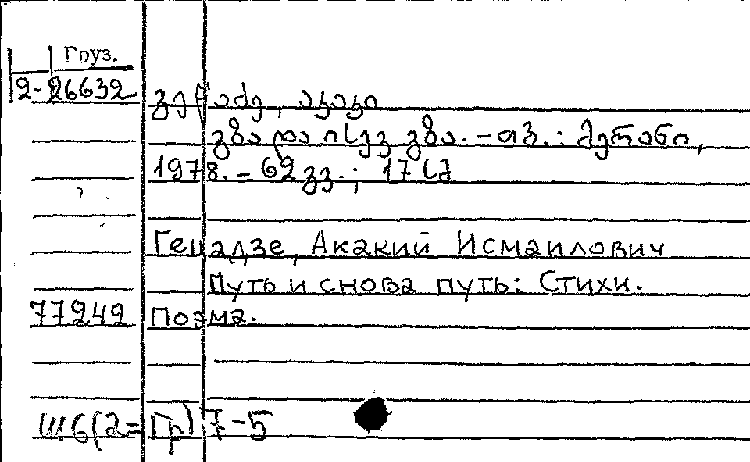 Груз.
2-26632
გეწაძე, აკაკი
გზა და ისევ გზა. – თბ.: მერანი,
1978. – 62 გვ.; 17 სმ
Гецадзе, Акакий Исмаилович
Путь и снова путь: Стихи.
77249 Поэма.
Ш6(2=Гр)7-5